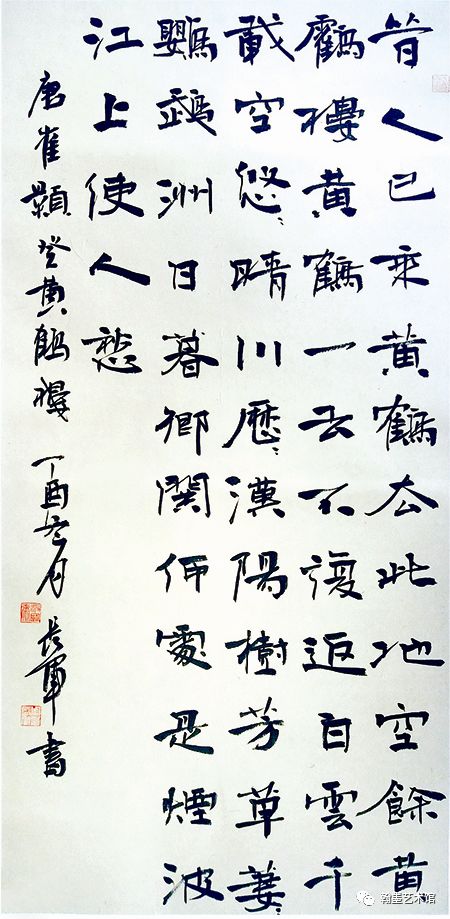 昔人已乘黄鶴去此地空餘黄
鶴樓黄鶴一去不復返白雲千
載空悠〻晴川歷〻漢陽樹芳草萋〻
鸚鵡洲日暮鄉關何處是煙波
江上使人愁
唐崔顥登黄鶴樓 丁酉冬月 長軍書
翰墨艺术馆